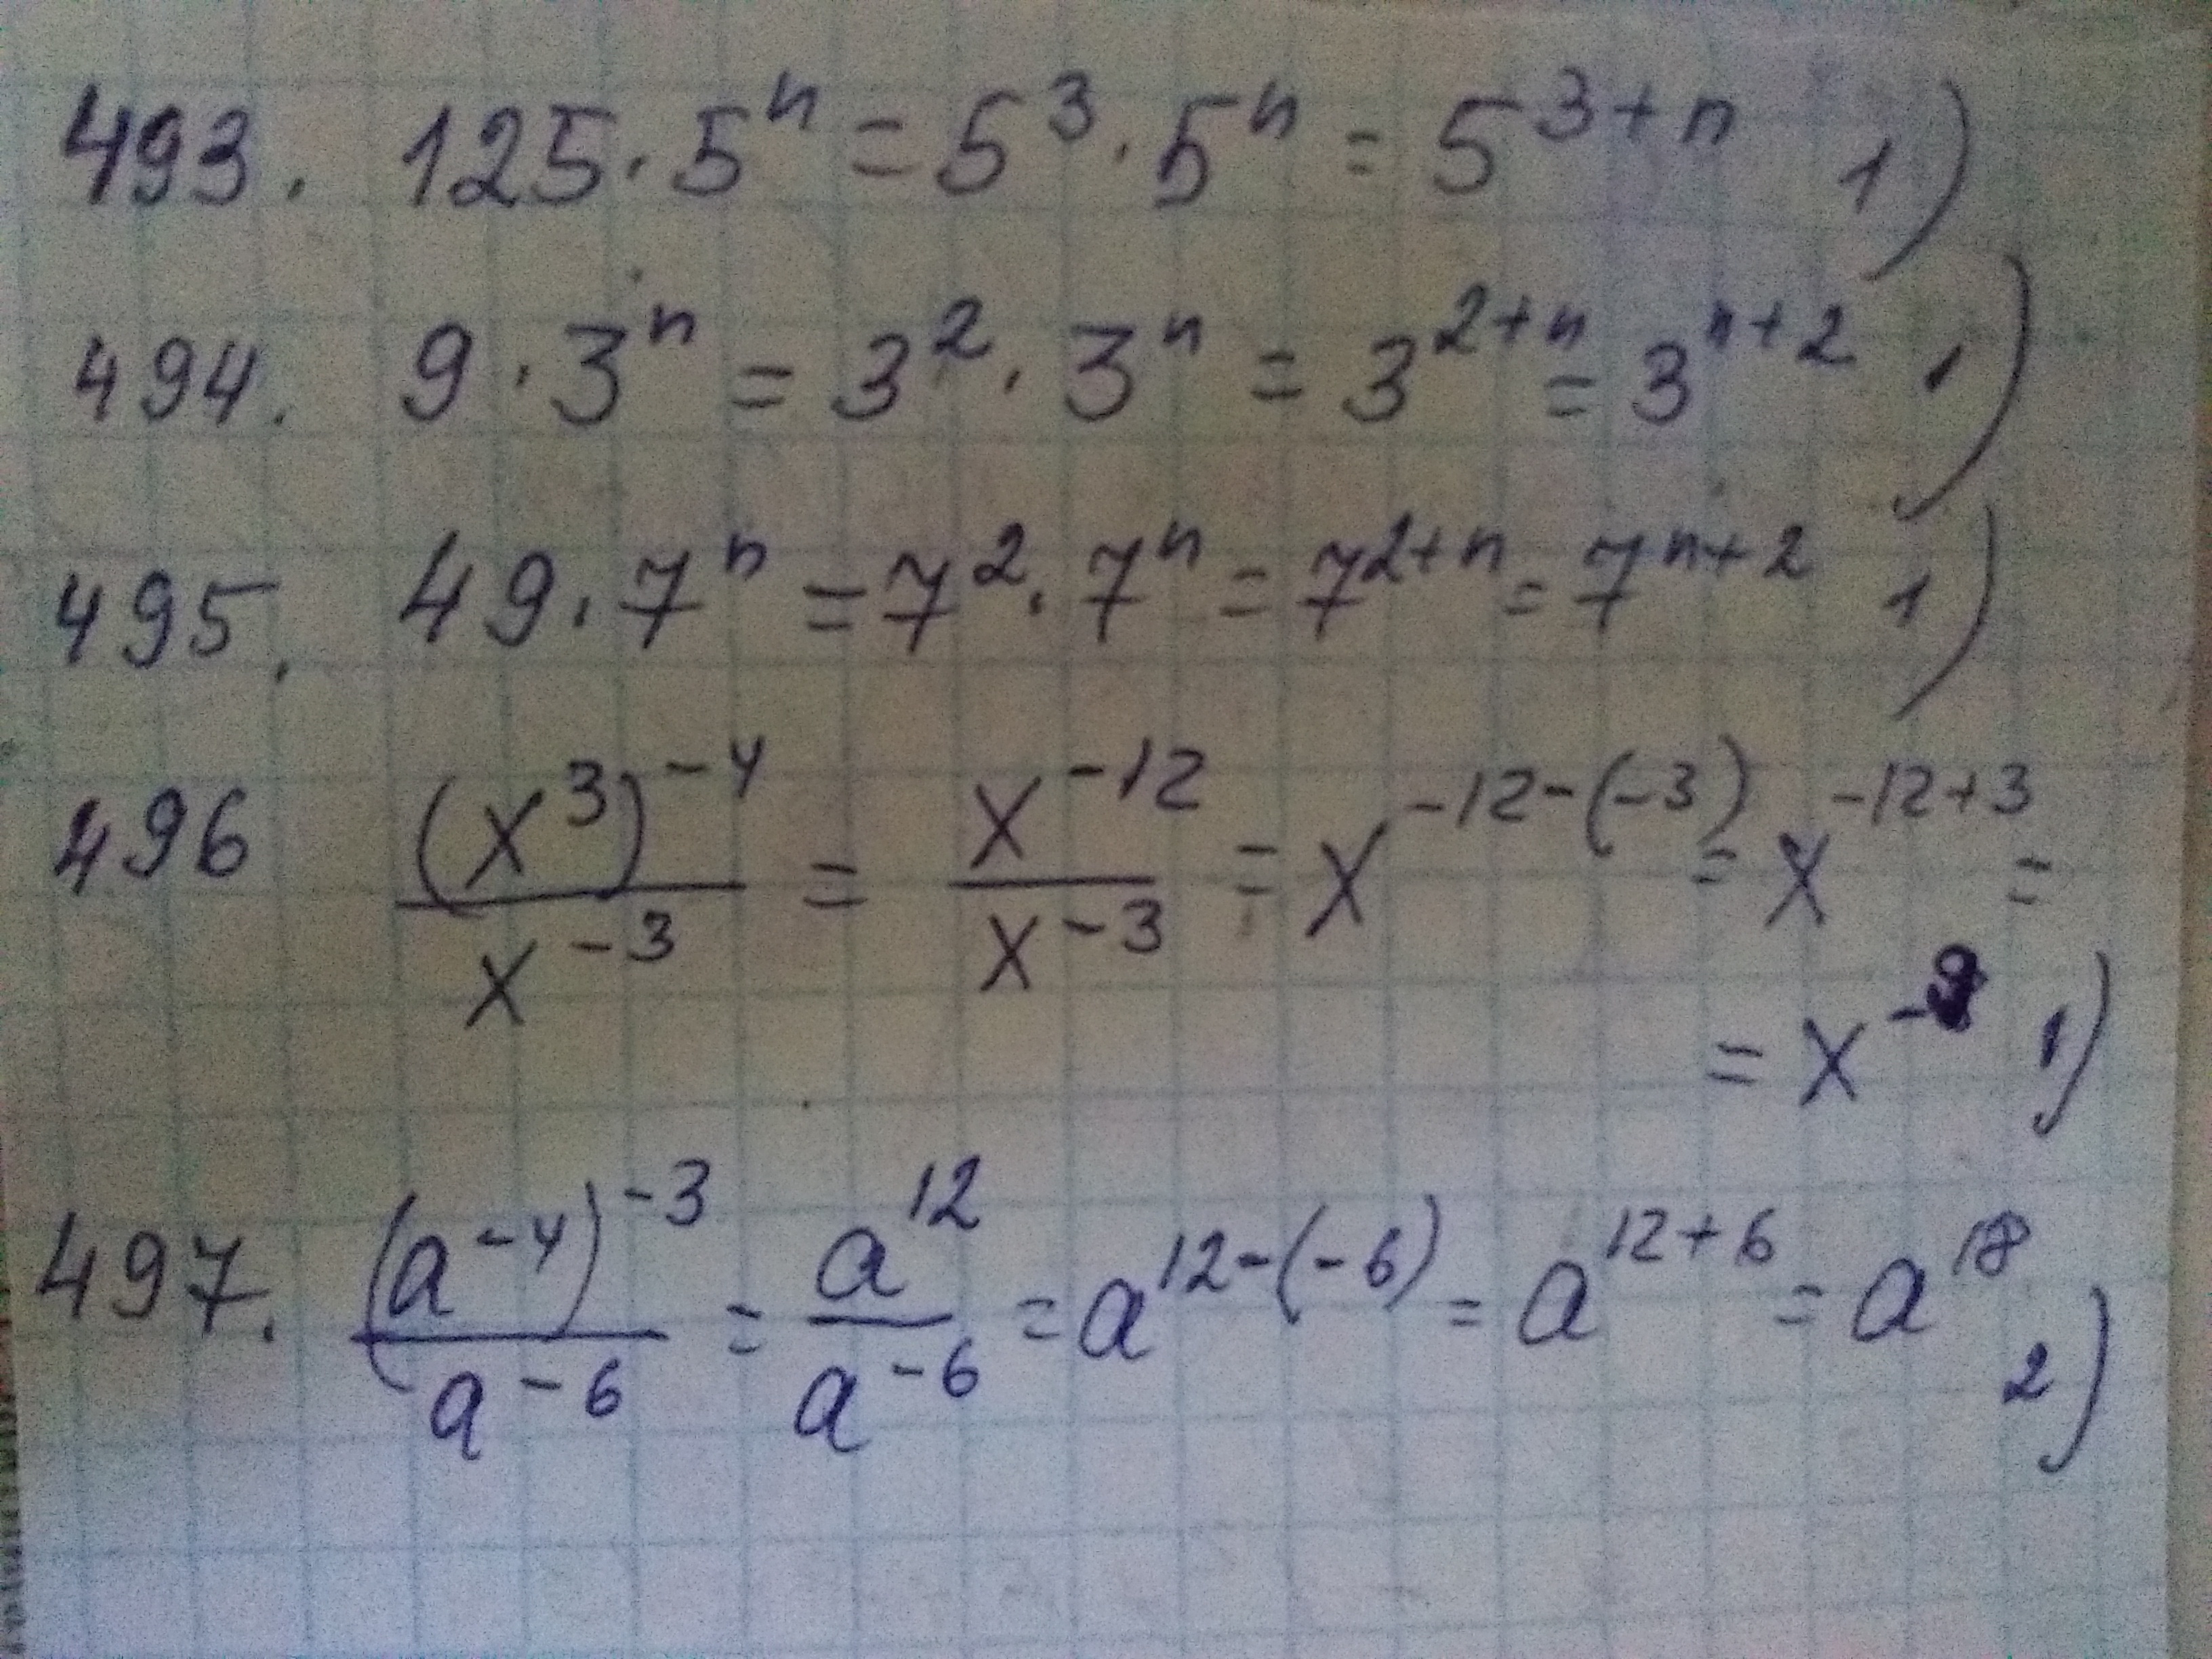 493. 125 · 5ⁿ = 5³ · 5ⁿ = 5³⁺ⁿ 1)
494. 9 · 3ⁿ = 3² · 3ⁿ = 3²⁺ⁿ = 3ⁿ⁺² 1)
495. 49 · 7ⁿ = 7² · 7ⁿ = 7²⁺ⁿ = 7ⁿ⁺² 1)
496 (x³)⁻⁴ / x⁻³ = x⁻¹² / x⁻³ = x⁻¹²⁻⁽⁻³⁾ = x⁻¹²⁺³ =
= x⁻⁹ 1)
497. (a⁻⁴)⁻³ / a⁻⁶ = a¹² / a⁻⁶ = a¹²⁻⁽⁻⁶⁾ = a¹²⁺⁶ = a¹⁸ 2)